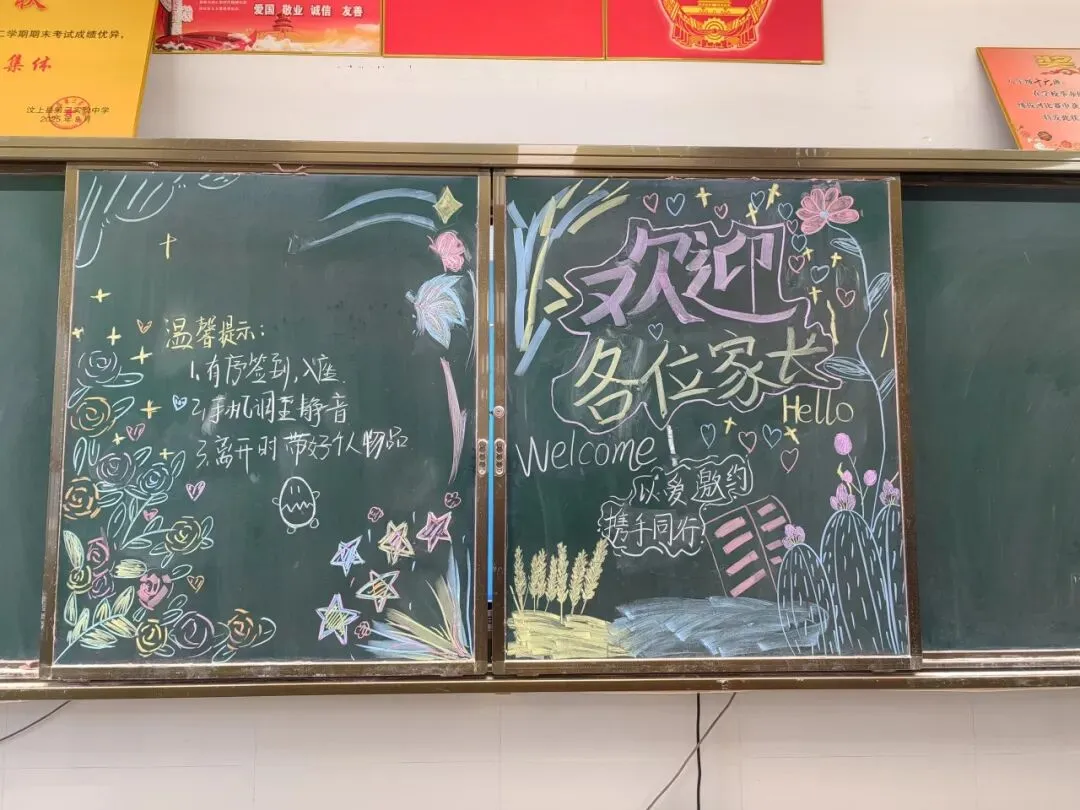 二学期期末考试成绩优异，
集体
汶上县第三实验中学
2025年8月
爱国 敬业 诚信 友善
温馨提示：
1.有序签到，入座.
2.手机调至静音
3.离开时带好个人物品
欢迎
各位家长
Hello
Welcome
以爱邀约
携手同行